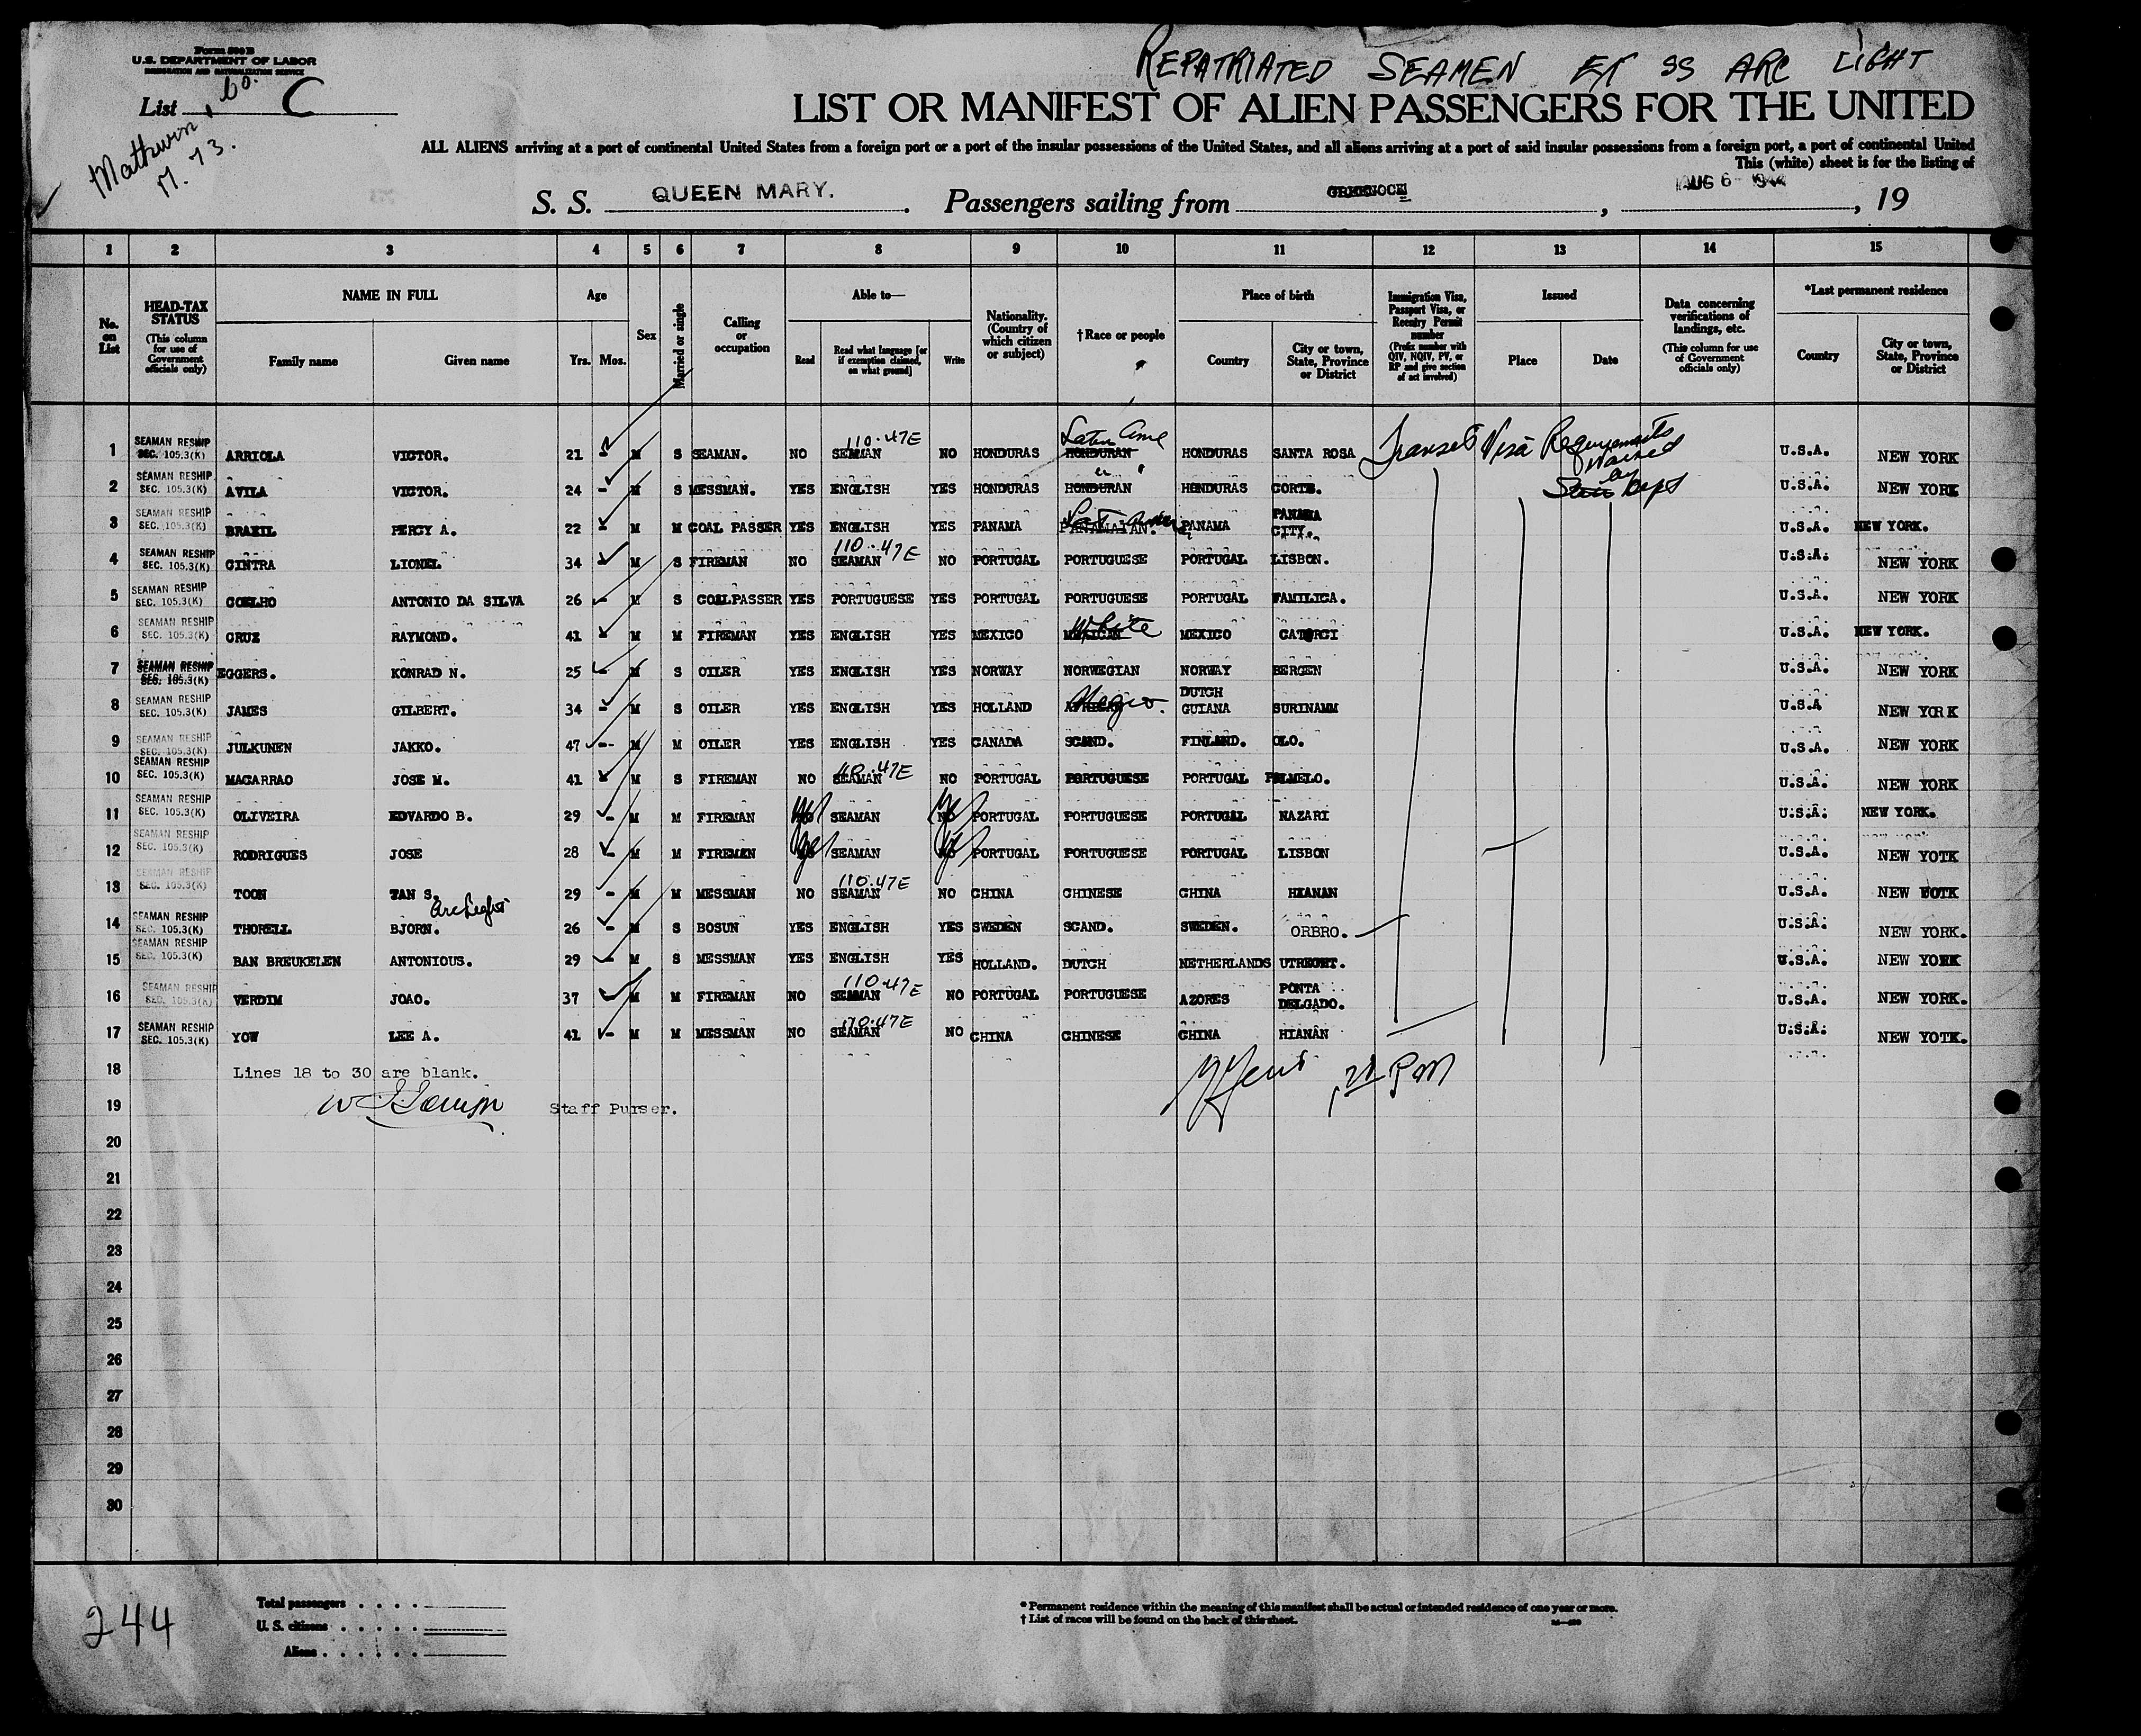 REPATRIATED SEAMEN EX SS ARC LIGHT
Form 500 B
U.S. DEPARTMENT OF LABOR
IMMIGRATION AND NATURALIZATION SERVICE
List C
LIST OR MANIFEST OF ALIEN PASSENGERS FOR THE UNITED
ALL ALIENS arriving at a port of continental United States from a foreign port or a port of the insular possessions of the United States, and all aliens arriving at a port of said insular possessions from a foreign port, a port of continental United
This (white) sheet is for the listing of
S. S. QUEEN MARY. Passengers sailing from GREENOCK, AUG 6 1944, 19
1 2 3 4 5 6 7 8 9 10 11 12 13 14 15
No. on List
HEAD-TAX STATUS
(This column for use of Government officials only)
NAME IN FULL
Family name Given name
Age
Yrs. Mos.
Sex
Married or single
Calling or occupation
Able to—
Read Read what language [or if exemption claimed, on what ground] Write
Nationality. (Country of which citizen or subject)
†Race or people
Place of birth
Country City or town, State, Province or District
Immigration Visa, Passport Visa, or Reentry Permit number
(Prefix number with QIV, NQIV, PV, or RP and give section of act involved)
Issued
Place Date
Data concerning verifications of landings, etc.
(This column for use of Government officials only)
*Last permanent residence
Country City or town, State, Province or District
Transit Visa Requirements Waived by State Dept
1 SEAMAN RESHIP SEC. 105.3(K) ARRIOLA VICTOR. 21 - M S SEAMAN. NO SEAMAN 110.47E NO HONDURAS HONDURAN Latin Ame HONDURAS SANTA ROSA U.S.A. NEW YORK
2 SEAMAN RESHIP SEC. 105.3(K) AVILA VICTOR. 24 - M S MESSMAN. YES ENGLISH YES HONDURAS HONDURAN " " HONDURAS CORTE. U.S.A. NEW YORK
3 SEAMAN RESHIP SEC. 105.3(K) BRAZIL PERCY A. 22 - M M COAL PASSER YES ENGLISH YES PANAMA PANAMAIAN. PANAMA PANAMA CITY. U.S.A. NEW YORK.
4 SEAMAN RESHIP SEC. 105.3(K) CINTRA LIONEL 34 - M S FIREMAN NO SEAMAN 110.47E NO PORTUGAL PORTUGUESE PORTUGAL LISBON. U.S.A. NEW YORK
5 SEAMAN RESHIP SEC. 105.3(K) COELHO ANTONIO DA SILVA 26 - M S COALPASSER YES PORTUGUESE YES PORTUGAL PORTUGUESE PORTUGAL FAMILICA. U.S.A. NEW YORK
6 SEAMAN RESHIP SEC. 105.3(K) CRUZ RAYMOND. 41 - M M FIREMAN YES ENGLISH YES MEXICO MEXICAN White MEXICO CATORCI U.S.A. NEW YORK.
7 SEAMAN RESHIP SEC. 105.3(K) EGGERS. KONRAD N. 25 - M S OILER YES ENGLISH YES NORWAY NORWEGIAN NORWAY BERGEN U.S.A. NEW YORK
8 SEAMAN RESHIP SEC. 105.3(K) JAMES GILBERT. 34 - M S OILER YES ENGLISH YES HOLLAND Negro. DUTCH GUIANA SURINAMM U.S.A NEW YORK
9 SEAMAN RESHIP SEC. 105.3(K) JULKUNEN JAKKO. 47 -- M M OILER YES ENGLISH YES CANADA SCAND. FINLAND. OLO. U.S.A. NEW YORK
10 SEAMAN RESHIP SEC. 105.3(K) MACARRAO JOSE M. 41 - M S FIREMAN NO SEAMAN 110.47E NO PORTUGAL PORTUGUESE PORTUGAL PALMELO. U.S.A. NEW YORK
11 SEAMAN RESHIP SEC. 105.3(K) OLIVEIRA EDVARDO B. 29 - M M FIREMAN yes SEAMAN NO yes PORTUGAL PORTUGUESE PORTUGAL NAZARI U.S.A. NEW YORK.
12 SEAMAN RESHIP SEC. 105.3(K) RODRIGUES JOSE 28 - M M FIREMAN yes SEAMAN NO yes PORTUGAL PORTUGUESE PORTUGAL LISBON U.S.A. NEW YOTK
13 SEAMAN RESHIP SEC. 105.3(K) TOON TAN S. 29 - M M MESSMAN NO SEAMAN 110.47E NO CHINA CHINESE CHINA HIANAN U.S.A. NEW YOTK
Arc Light
14 SEAMAN RESHIP SEC. 105.3(K) THORELL BJORN. 26 - M S BOSUN YES ENGLISH YES SWEDEN SCAND. SWEDEN. ORBRO. U.S.A. NEW YORK.
15 SEAMAN RESHIP SEC. 105.3(K) BAN BREUKELEN ANTONIOUS. 29 - M S MESSMAN YES ENGLISH YES HOLLAND. DUTCH NETHERLANDS UTRECHT. U.S.A. NEW YORK
16 SEAMAN RESHIP SEC. 105.3(K) VERDIM JOAO. 37 - M M FIREMAN NO SEAMAN 110.47E NO PORTUGAL PORTUGUESE AZORES PONTA DELGADO. U.S.A. NEW YORK.
17 SEAMAN RESHIP SEC. 105.3(K) YOW LEE A. 41 - M M MESSMAN NO SEAMAN 110.47E NO CHINA CHINESE CHINA HIANAN U.S.A. NEW YOTK.
18 Lines 18 to 30 are blank.
19 Staff Purser.
20
21
22
23
24
25
26
27
28
29
30
244
Total passengers
U. S. citizens
Aliens
* Permanent residence within the meaning of this manifest shall be actual or intended residence of one year or more.
† List of races will be found on the back of this sheet.